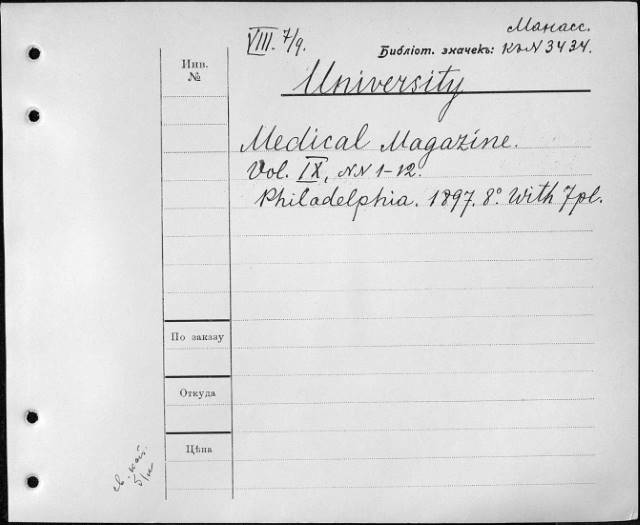 Манасс.
VIII. 7/9.
Библіот. значекъ: къ N 3434.
Инв.
№
University
Medical Magazine.
Vol. IX, NN 1-12.
Philadelphia. 1897. 8°. With 7 pl.
По заказу
Откуда
Цѣна